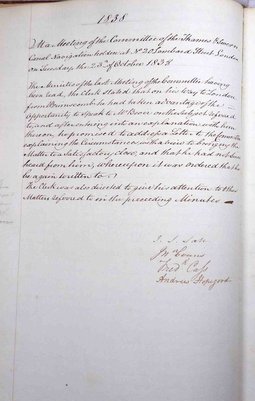 1838
At a Meeting of the Committee of the Thames & Severn
Canal Navigation holden at No 20 Lombard Street London
on Tuesday the 23rd of October 1838
The Minutes of the last Meeting of the Committee having
been read, the Clerk stated that on his Way to London
from he had taken advantage of the
Opportunity to speak to Mr on the Subject referred
to, and after entering into an explanation with him
thereon, he promised to address a Letter to the Committee
explaining the Circumstances, with a view to bringing the
Matter to a Satisfactory Close, and that he had not since
heard from him, whereupon it was ordered that he
be again written to
The Clerk was also directed to give his attention to other
Matters referred to in the preceding Minutes
Fredk Cass
Andrew